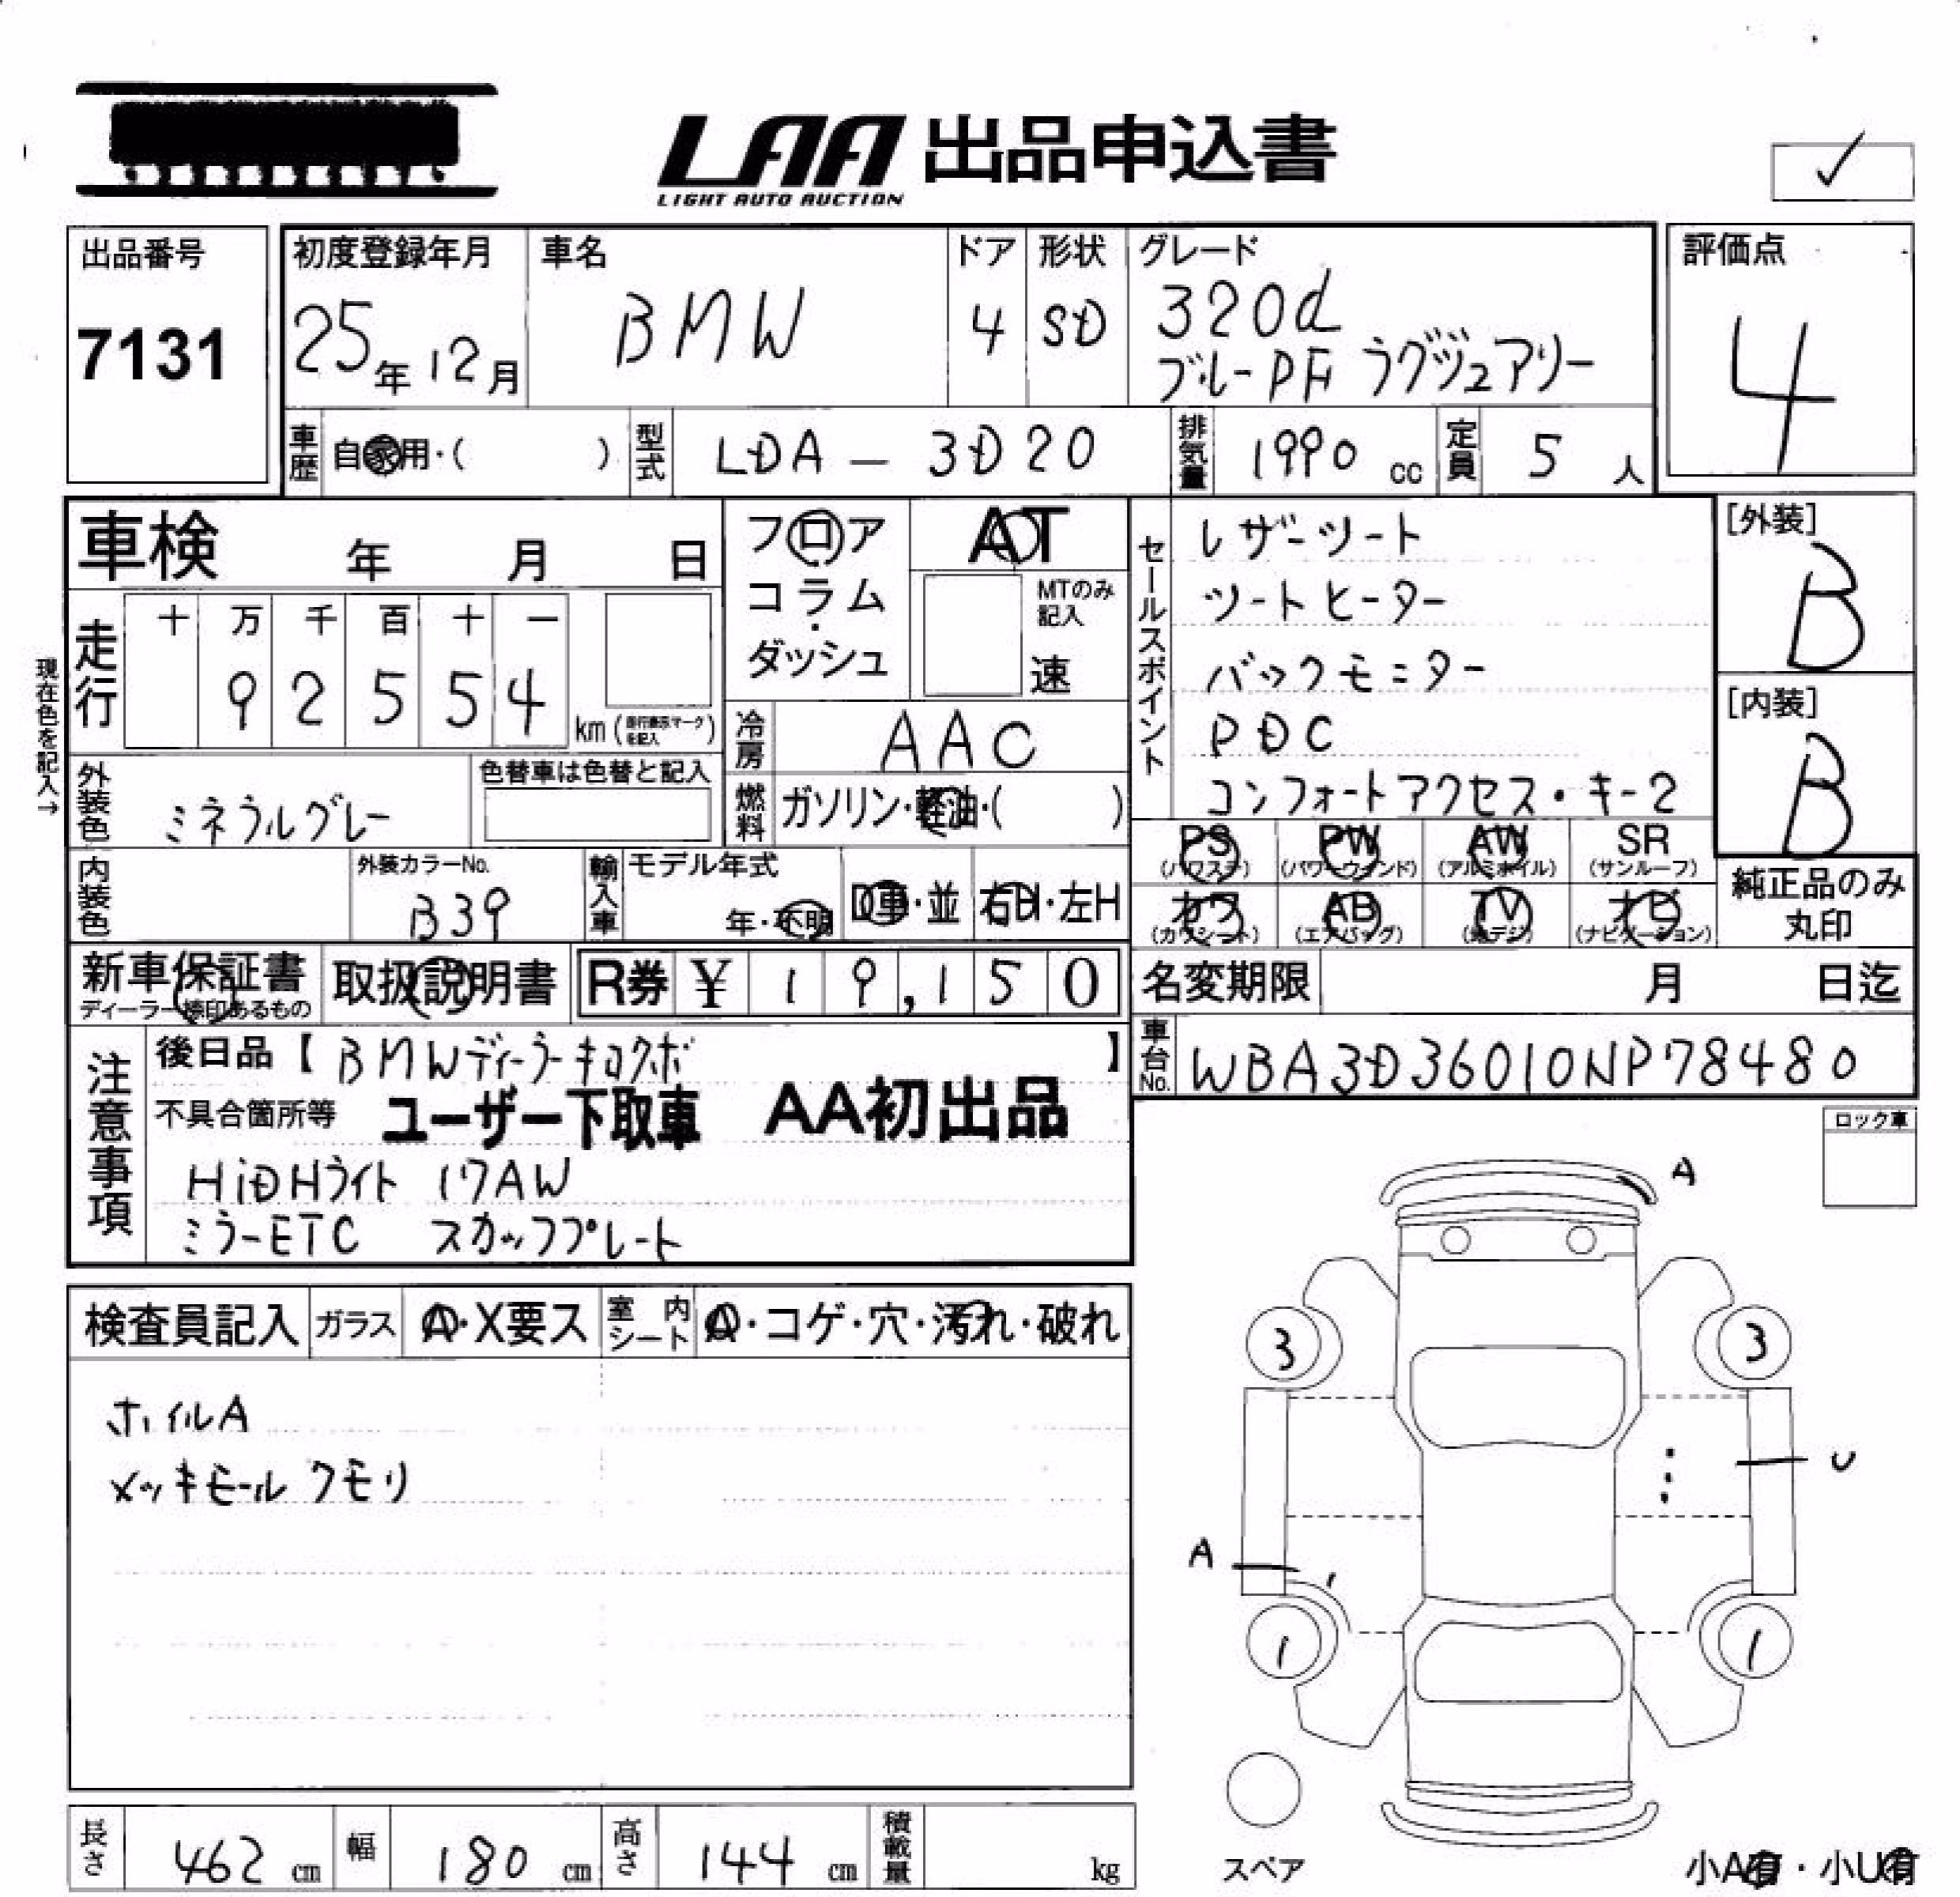 LAA 出品申込書
LIGHT AUTO AUCTION
出品番号
7131
初度登録年月
25年 12月
車名
BMW
ドア
4
形状
SD
グレード
320d
ブルーPF ラグジュアリー
評価点
4
車歴 自家用・( )
型式 LDA - 3D20
排気量 1990 cc
定員 5 人
車検 年 月 日
フロア
コラム
・
ダッシュ
AT
MTのみ
記入
速
セールスポイント
レザーシート
シートヒーター
バックモニター
PDC
コンフォートアクセス・キー2
[外装]
B
[内装]
B
現在色を記入→
走行
十 万 千 百 十 一
9 2 5 5 4
km
冷房 AAC
外装色 ミネラルグレー
色替車は色替と記入
燃料 ガソリン・軽油・( )
PS
(パワステ)
PW
(パワーウィンド)
AW
(アルミホイル)
SR
(サンルーフ)
カワ
(カワシート)
AB
(エアバッグ)
TV
(地デジ)
ナビ
(ナビゲーション)
純正品のみ
丸印
内装色
外装カラーNo.
B39
輸入車
モデル年式
年・不明
D車・並
右H・左H
新車保証書
ディーラー捺印あるもの
取扱説明書
R券 ¥ 19,150
名変期限 月 日迄
車台No. WBA3D36010NP78480
注意事項
後日品【BMWディーラーキロクボ】
不具合箇所等 ユーザー下取車 AA初出品
HiDHライト 17AW
ミラーETC スカッフプレート
ロック車
検査員記入
ガラス A・X要ス
室内シート A・コゲ・穴・汚れ・破れ
ホイルA
メッキモール クモリ
A
3
3
U
A
1
1
スペア
小A有・小U有
長さ 462 cm
幅 180 cm
高さ 144 cm
積載量 kg